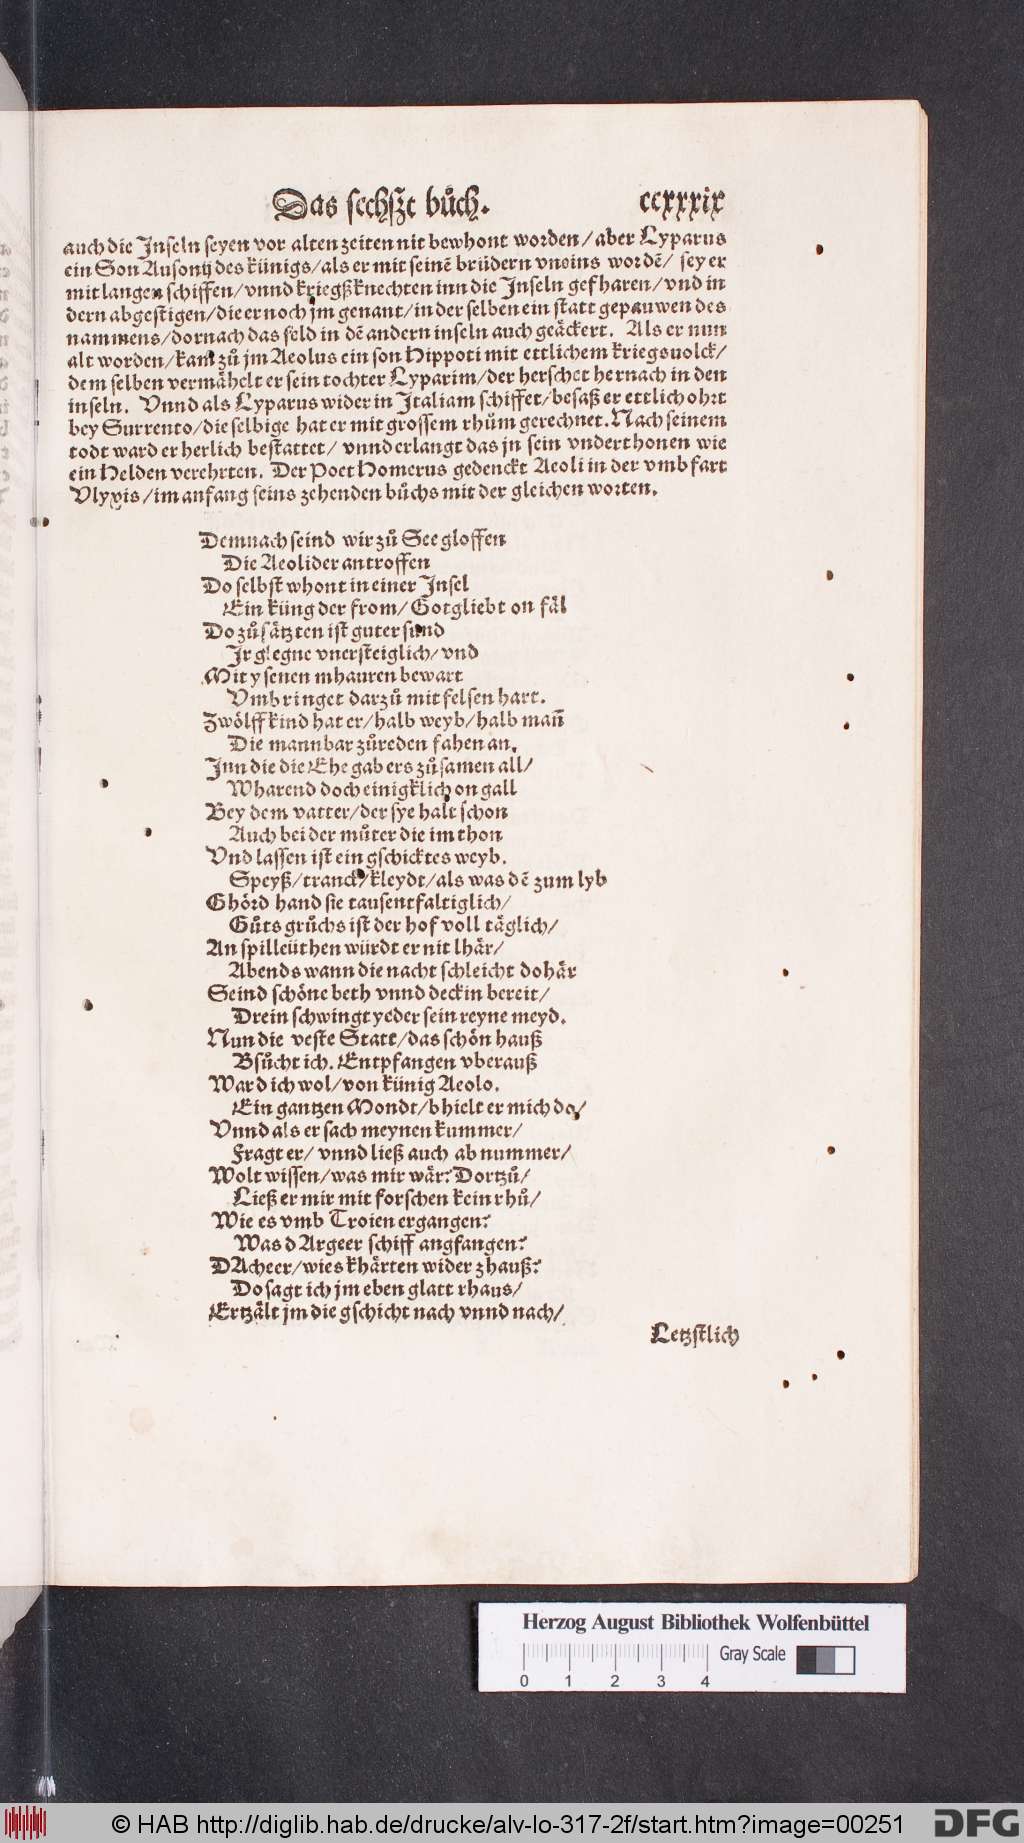 Das sechßzt bůch. ccxxxix
auch die Inseln seyen vor alten zeiten nit bewhont worden/ aber Lyparus
ein Son Ausonij des künigs/als er mit seinē brüdern vneins wordē/ sey er
mit langen schiffen/vnnd kriegßknechten inn die Inseln gefharen/vnd in
dern abgestigen/die er noch jm genant/in der selben ein statt gepauwen des
nammens/dornach das feld in dē andern inseln auch geäckert. Als er nun
alt worden/kam zů jm Aeolus ein son Hippoti mit ettlichem kriegsuolck/
dem selben vermähelt er sein tochter Lyparim/der herschet hernach in den
inseln. Vnnd als Lyparus wider in Italiam schiffet/besaß er ettlich ohrt
bey Surrento/die selbige hat er mit grossem rhům gerechnet. Nach seinem
todt ward er herlich bestattet/ vnnd erlangt das jn sein vnderthonen wie
ein Helden verehrten. Der Poet Homerus gedenckt Aeoli in der vmbfart
Vlyxis/im anfang seins zehenden bůchs mit der gleichen worten.
Demnach seind wir zů See gloffen
Die Aeolider antroffen
Do selbst whont in einer Insel
Ein küng der from/ Gotgliebt on fäl
Do zůsätzten ist guter sund
Ir glegne vnersteiglich/ vnd
Mit ysenen mhauren bewart
Vmbringet darzů mit felsen hart.
Zwölff kind hat er/halb weyb/halb mañ
Die mannbar zůreden fahen an.
Inn die die Ehe gab ers zůsamen all/
Wharend doch einigklich on gall
Bey dem vatter/der sye halt schon
Auch bei der můter die im thon
Vnd lassen ist ein gschicktes weyb.
Speyß/tranck/kleydt/als was dē zum lyb
Ghörd hand sie tausentfaltiglich/
Gůts grůchs ist der hof voll täglich/
An spilleüthen würdt er nit lhär/
Abends wann die nacht schleicht dohär
Seind schöne beth vnnd deckin bereit/
Drein schwingt yeder sein reyne meyd.
Nun die veste Statt/das schön hauß
Bsůcht ich. Entpfangen vberauß
Ward ich wol/von künig Aeolo.
Ein gantzen Mondt/bhielt er mich do/
Vnnd als er sach meynen kummer/
Fragt er/ vnnd ließ auch ab nummer/
Wolt wissen/was mir wär? Dortzů/
Ließ er mir mit forschen kein rhů/
Wie es vmb Troien ergangen?
Was d Argeer schiff angfangen?
D Acheer/wies khärten wider zhauß?
Do sagt ich jm eben glatt rhaus/
Ertzält jm die gschicht nach vnnd nach/
Letzstlich
Herzog August Bibliothek Wolfenbüttel
Gray Scale
0 1 2 3 4
© HAB http://diglib.hab.de/drucke/alv-lo-317-2f/start.htm?image=00251
DFG